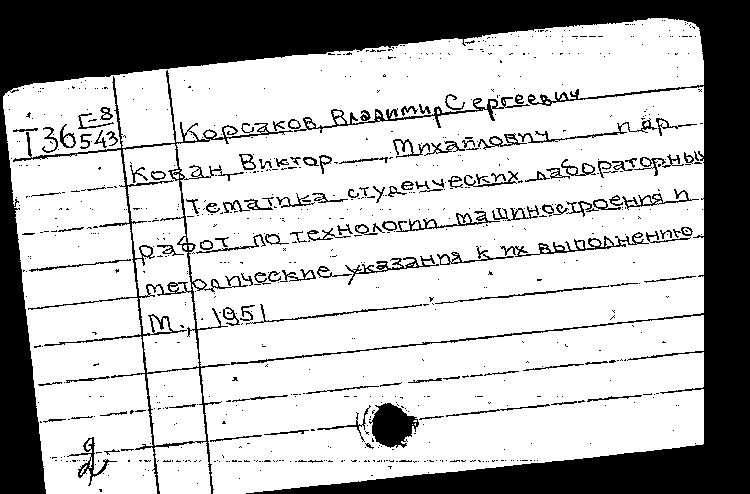 Т36 Г-8
543
Корсаков, Владимир Сергеевич
Кован, Виктор Михайлович и др.
Тематика студенческих лабораторных
работ по технологии машиностроения и
методические указания к их выполнению.
М., 1951